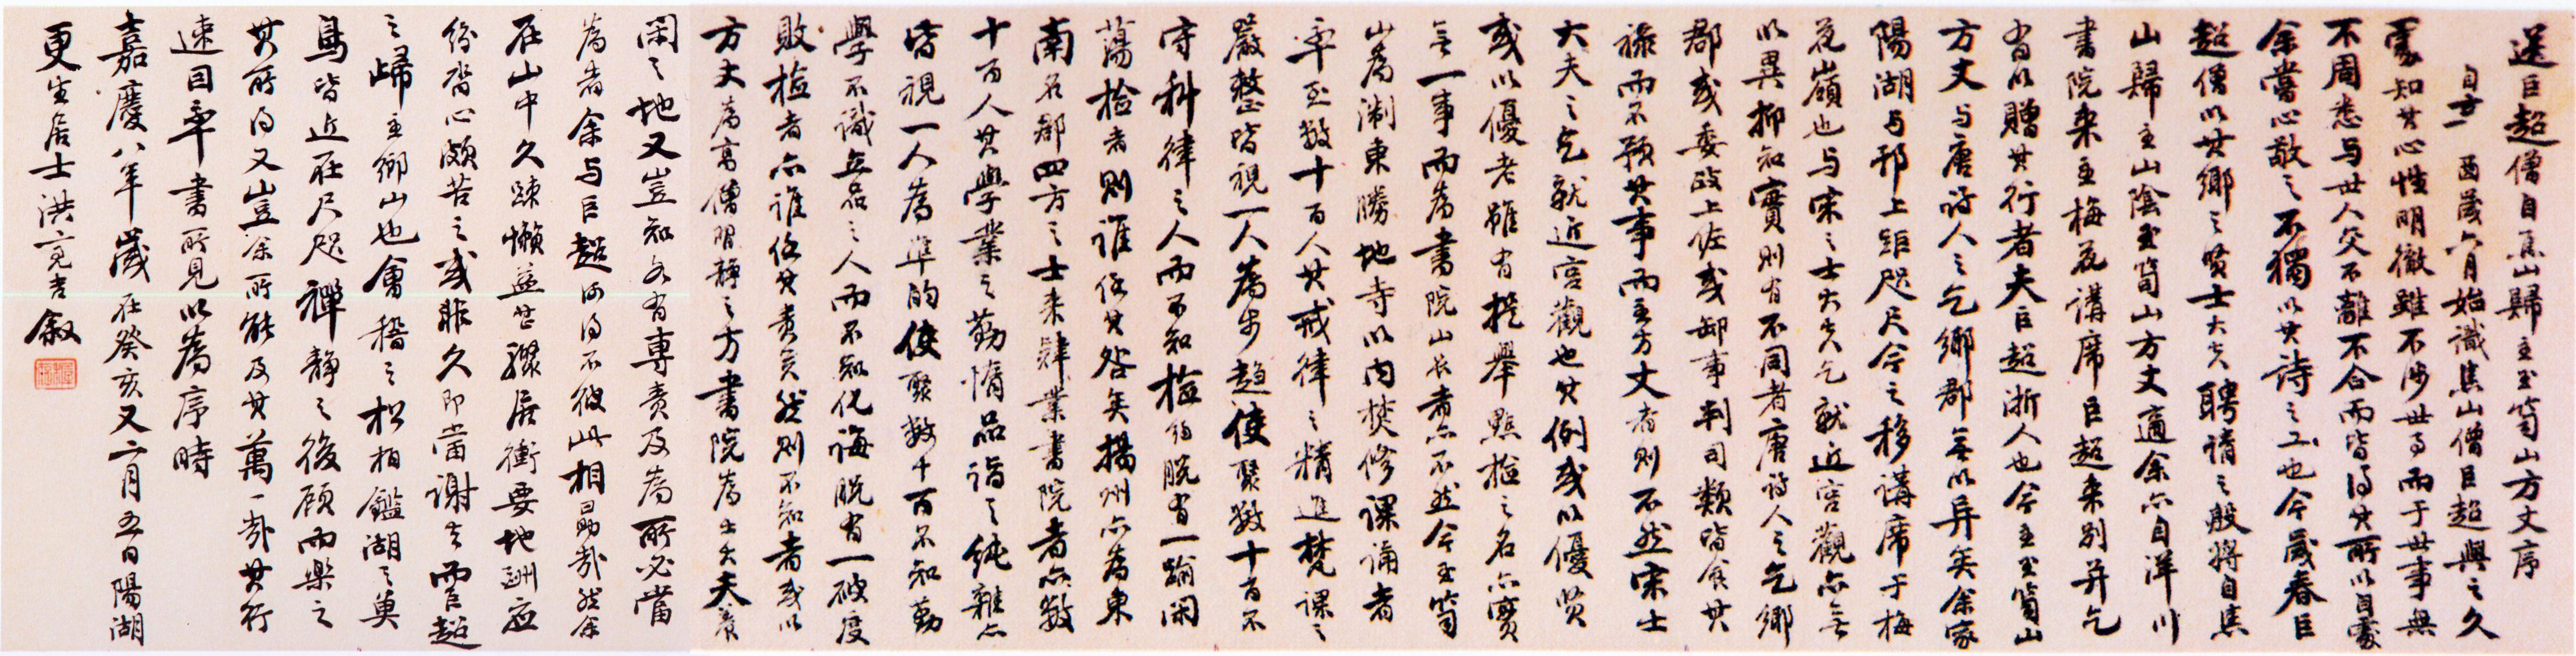 送巨超僧自焦山歸主玉笥山方丈序
自辛酉歲六月始識焦山僧巨超與之久
處知其心性明徹雖不涉世事而于世事無
不周悉与世人交不離不合而皆得其所以自處
余嘗心敬之不獨以其詩之工也今歲春巨
超僧以其鄉之賢士大夫聘請之殷將自焦
山歸主山陰玉笥山方丈適余亦自洋川
書院来主梅花講席巨超来別并乞
言以贈其行者夫巨超浙人也今主玉笥山
方丈与唐時人之乞鄉郡無以异矣余家
陽湖与邗上距咫尺今之移講席于梅
花嶺也与宋之士大夫乞就近宮觀亦無
以異抑知實則有不同者唐時人之乞鄉
郡或委政上佐或卸事判司類皆食其
祿而不預其事而主方丈者則不然宋士
大夫之乞就近宮觀也其例或以優賢
或以優老雖有提舉點檢之名亦實
無一事而為書院山長者亦不然今玉笥
山為浙東勝地寺以内焚修課誦者
率至數十百人其戒律之精進梵課之
嚴整皆視一人為步趨使聚數十百不
守科律之人而不知檢飭脫有一踰閑
蕩檢者則誰任其咎矣揚州亦為東
南名郡四方之士来肄業書院者亦數
十百人其學業之勤惰品詣之純雜亦
皆視一人為準的使聚數十百不知勤
學不識立品之人而不知化誨脫有一破度
敗檢者亦誰任其責矣然則不知者或以
方丈為高僧習靜之方書院為士大夫養
閑之地又豈知各有專責及為所必當
為者余与巨超何得不彼此相勗哉然余
在山中久踈懶益甚驟居衝要地酬應
紛沓心頗苦之或非久即當謝去而巨超
之歸主鄉山也會稽之松柏鑑湖之魚
鳥皆近在尺咫禪靜之後顧而樂之
其所得又豈余所能及其萬一哉其行
速因率書所見以為序時
嘉慶八年歲在癸亥又二月五日陽湖
更生居士洪亮吉叙